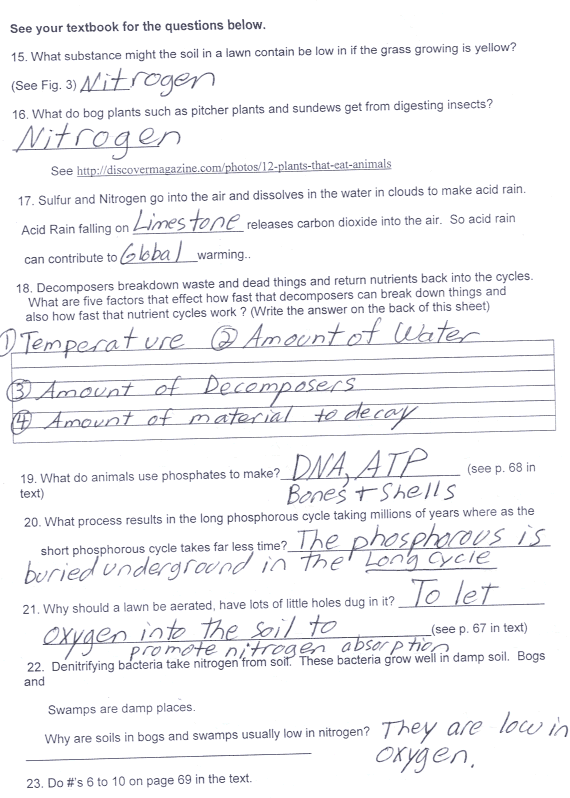 See your textbook for the questions below.
15. What substance might the soil in a lawn contain be low in if the grass growing is yellow?
(See Fig. 3) Nitrogen
16. What do bog plants such as pitcher plants and sundews get from digesting insects?
Nitrogen
See http://discovermagazine.com/photos/12-plants-that-eat-animals
17. Sulfur and Nitrogen go into the air and dissolves in the water in clouds to make acid rain.
Acid Rain falling on Limestone releases carbon dioxide into the air. So acid rain
can contribute to Global warming..
18. Decomposers breakdown waste and dead things and return nutrients back into the cycles.
What are five factors that effect how fast that decomposers can break down things and
also how fast that nutrient cycles work ? (Write the answer on the back of this sheet)
① Temperature ② Amount of Water
③ Amount of Decomposers
④ Amount of material to decay
19. What do animals use phosphates to make? DNA, ATP (see p. 68 in
text) Bones + Shells
20. What process results in the long phosphorous cycle taking millions of years where as the
short phosphorous cycle takes far less time? The phosphorous is
buried underground in the Long Cycle
21. Why should a lawn be aerated, have lots of little holes dug in it? To let
oxygen into the soil to (see p. 67 in text)
promote nitrogen absorption
22. Denitrifying bacteria take nitrogen from soil. These bacteria grow well in damp soil. Bogs
and
Swamps are damp places.
Why are soils in bogs and swamps usually low in nitrogen? They are low in
oxygen.
23. Do #'s 6 to 10 on page 69 in the text.